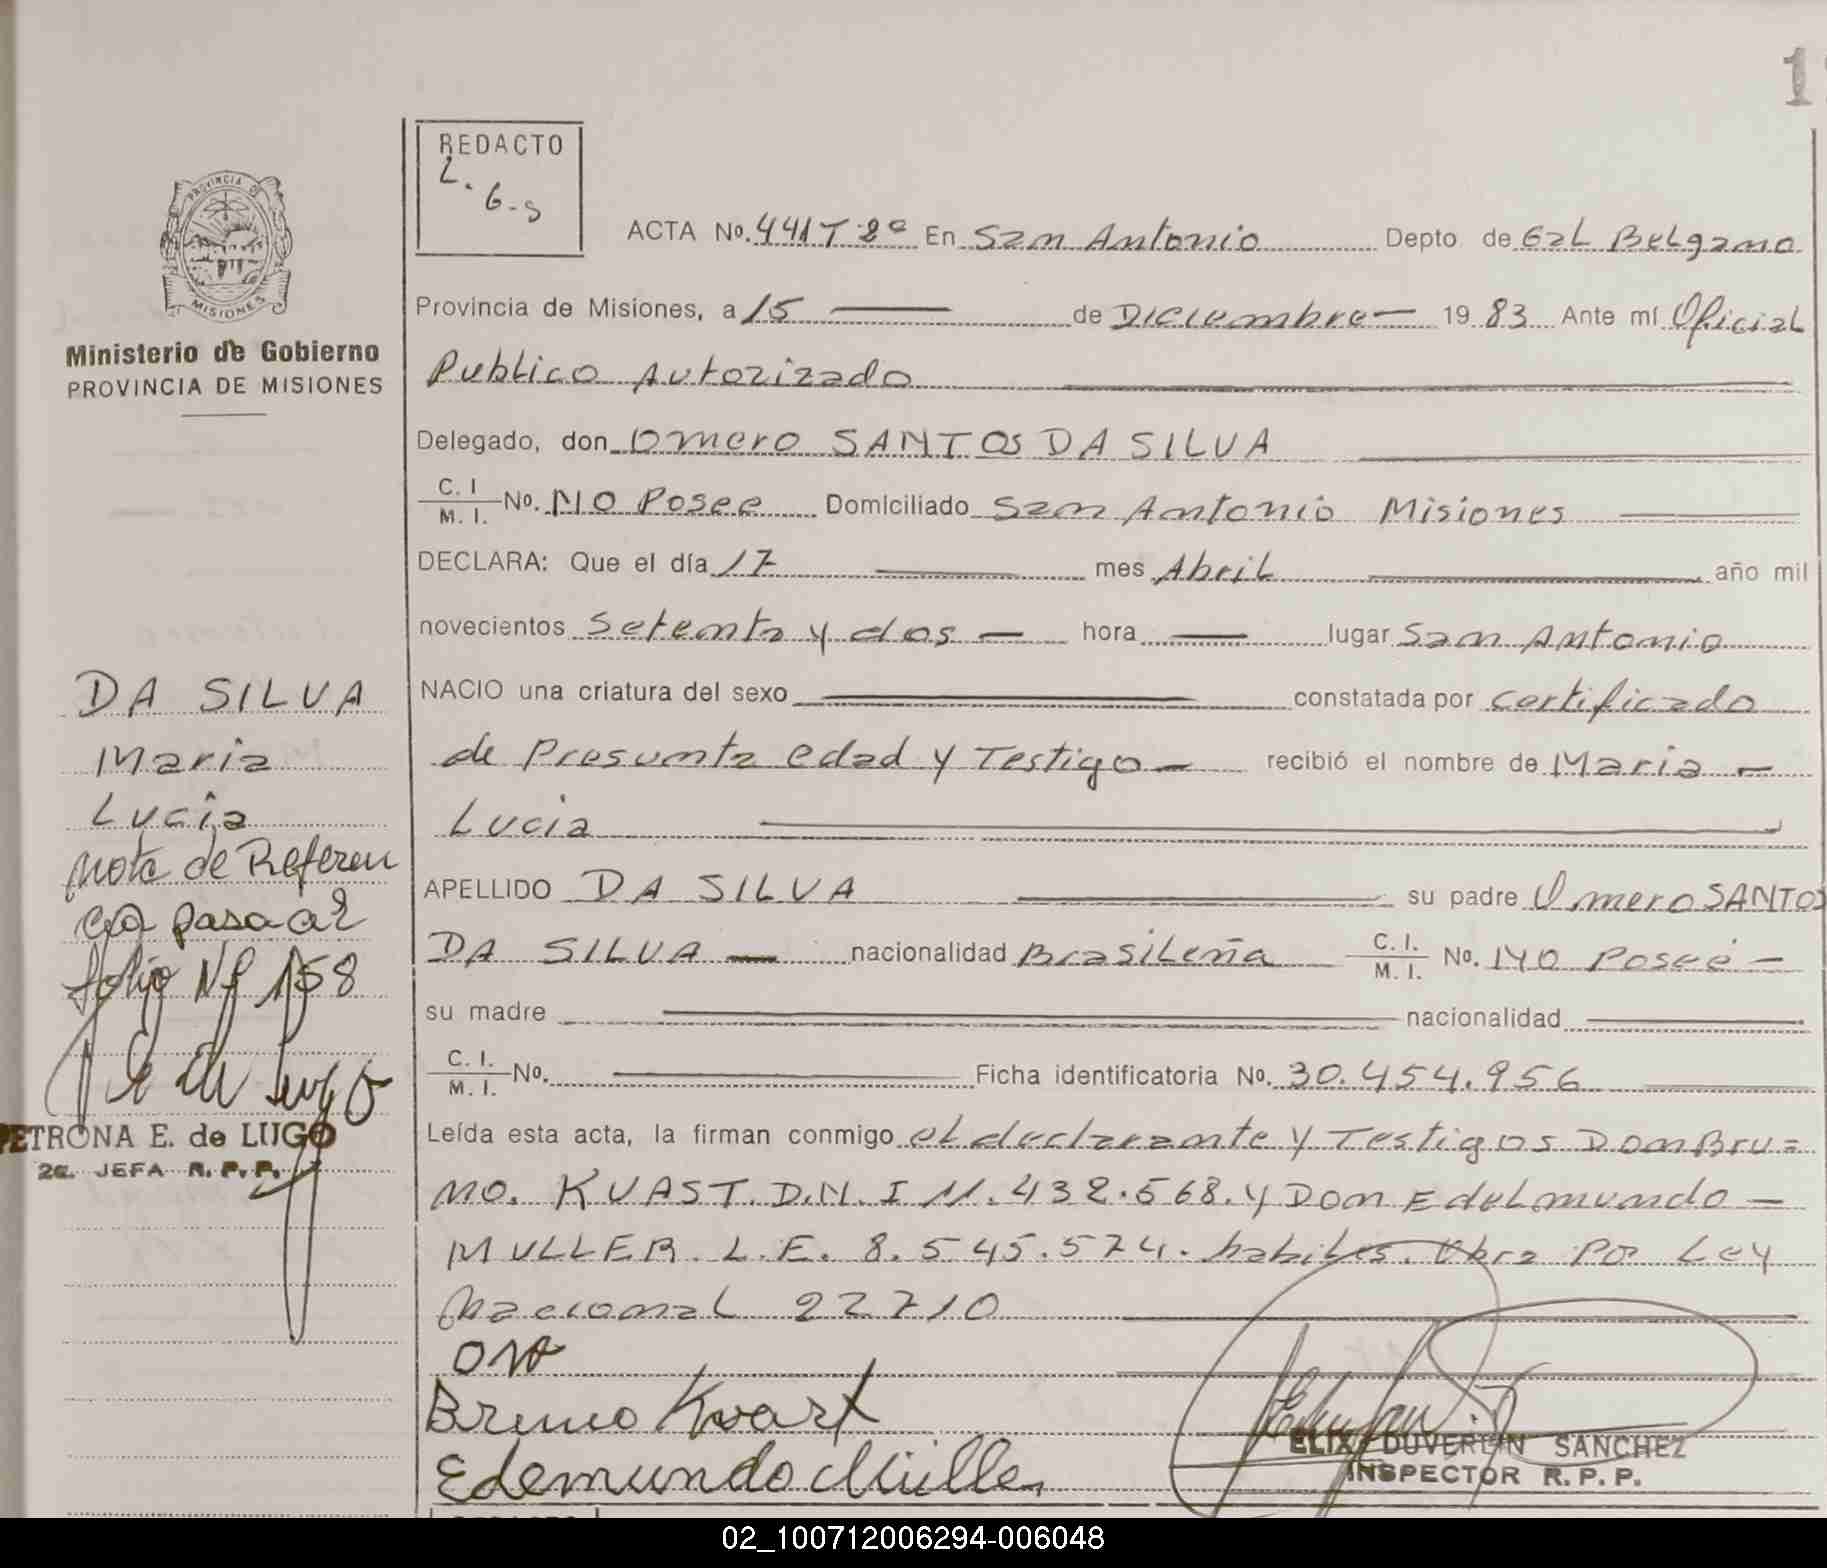 1
REDACTO
L. G. S
ACTA No. 441 T 2º En San Antonio Depto de Gal Belgrano
PROVINCIA DE
MISIONES
Provincia de Misiones, a 15 de Diciembre 1983 Ante mí Oficial
Ministerio de Gobierno
PROVINCIA DE MISIONES
Publico Autorizado
Delegado, don Omero SANTOS DA SILVA
C. I / M. I. No. NO Posee Domiciliado San Antonio Misiones
DECLARA: Que el día 17 mes Abril año mil
novecientos setenta y dos hora lugar San Antonio
NACIO una criatura del sexo constatada por certificado
de Presunta edad y Testigo recibió el nombre de Maria
Lucia
APELLIDO DA SILVA su padre Omero SANTOS
DA SILVA nacionalidad Brasileña C. I. / M. I. No. NO Posee
su madre nacionalidad
C. I. / M. I. No. Ficha identificatoria No. 30.454.956
Leída esta acta, la firman conmigo el declarante y Testigos Don Bru=
no. KUAST. D.N.I 11.432.568. y Don Edelmundo
MULLER. L.E. 8.545.574. habiles. Obra Por Ley
Nacional 22710
DA SILVA
Maria
Lucia
Nota de Referen
cia pasa al
folio Nº 158
PETRONA E. de LUGO
2a. JEFA R. P. P.
Bruno Kuast
Edemundo Müller
ELIX DUVERLIN SANCHEZ
INSPECTOR R. P. P.
02_100712006294-006048